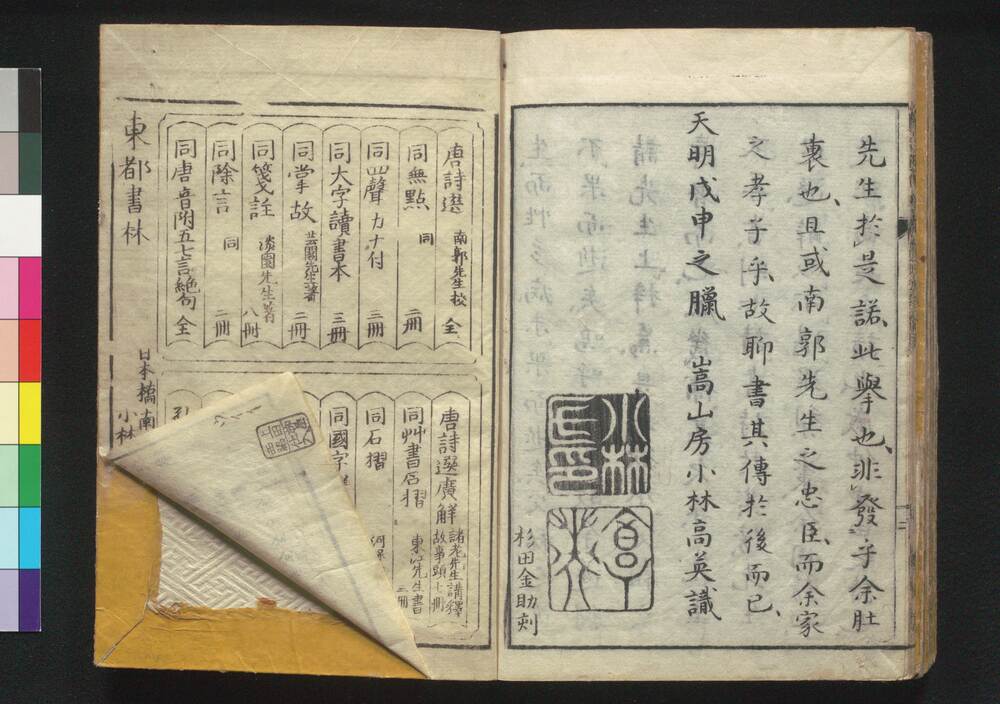 先生於是諾此擧也非發乎余肚
裏也且或南郭先生之忠臣而余家
之孝子乎故聊書其傳於後而已
天明戊申之臘 嵩山房小林高英識
小林
杉田金助刻
唐詩選 南郭先生校 全
同無點 同 二冊
同四聲カナ付 三冊
同大字讀書本 三冊
同掌故 芸閣先生著 二冊
同箋註 淡園先生著 八冊
同除言 同 二冊
同唐音附五七言絶句 全
唐詩選廣解 諸老先生講釋 故事題七冊
同艸書石摺 東江先生書 二冊
同石摺
同國字
東都書林
日本橋南
小林